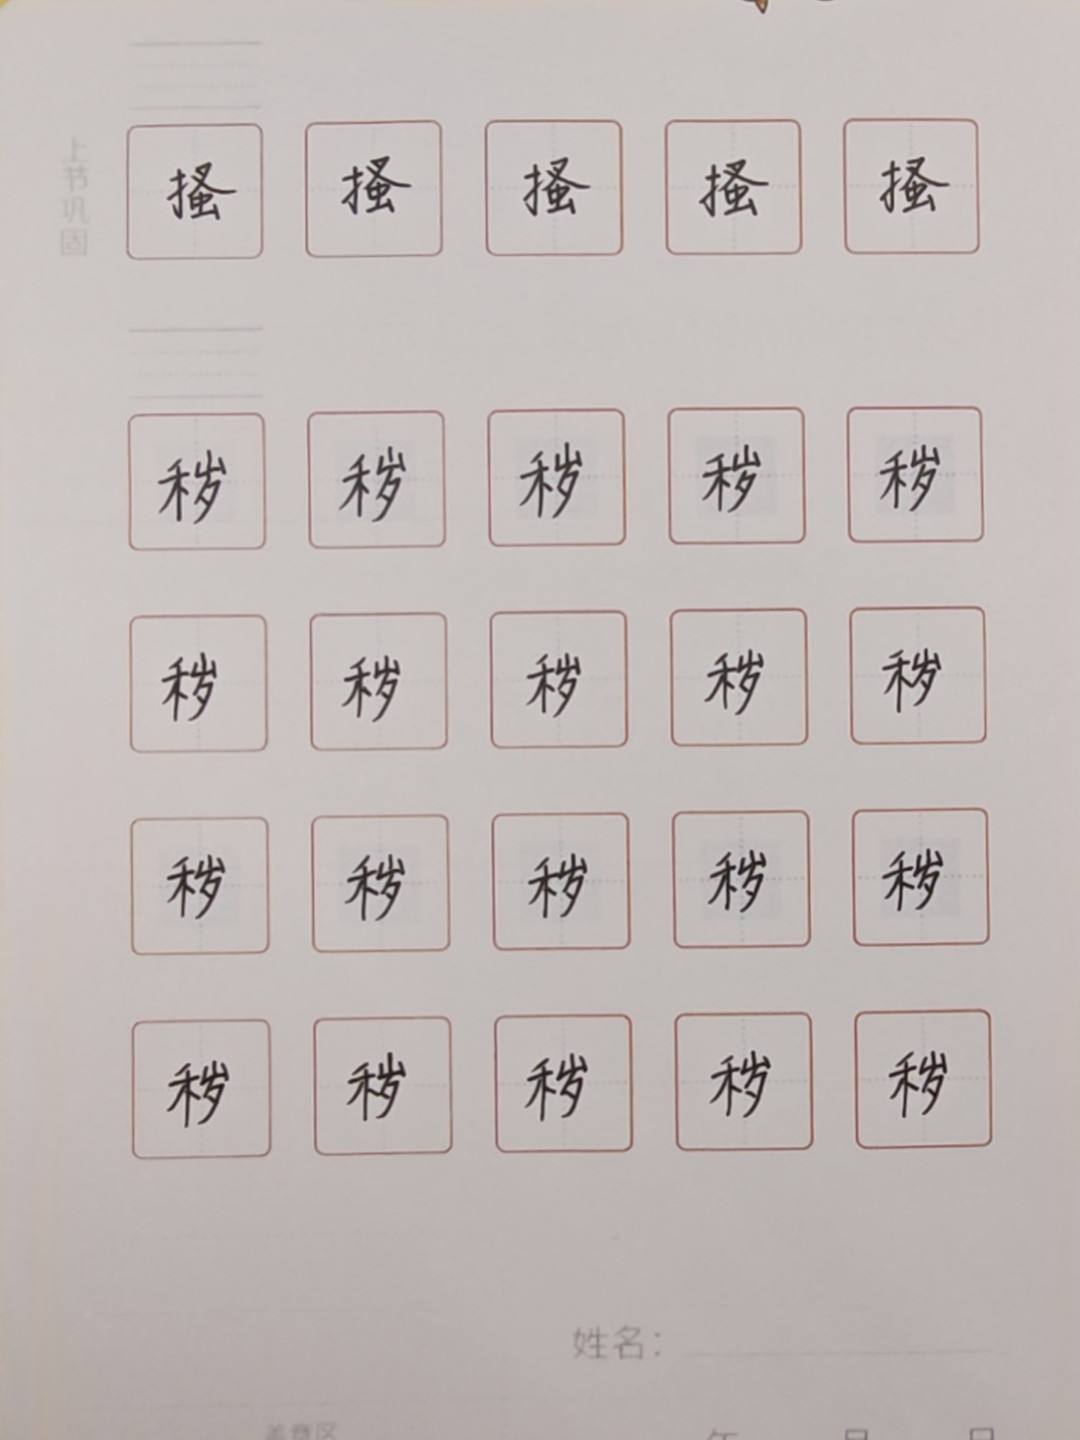 上节巩固
搔 搔 搔 搔 搔
秽 秽 秽 秽 秽
秽 秽 秽 秽 秽
秽 秽 秽 秽 秽
秽 秽 秽 秽 秽
姓名：
年 月 日